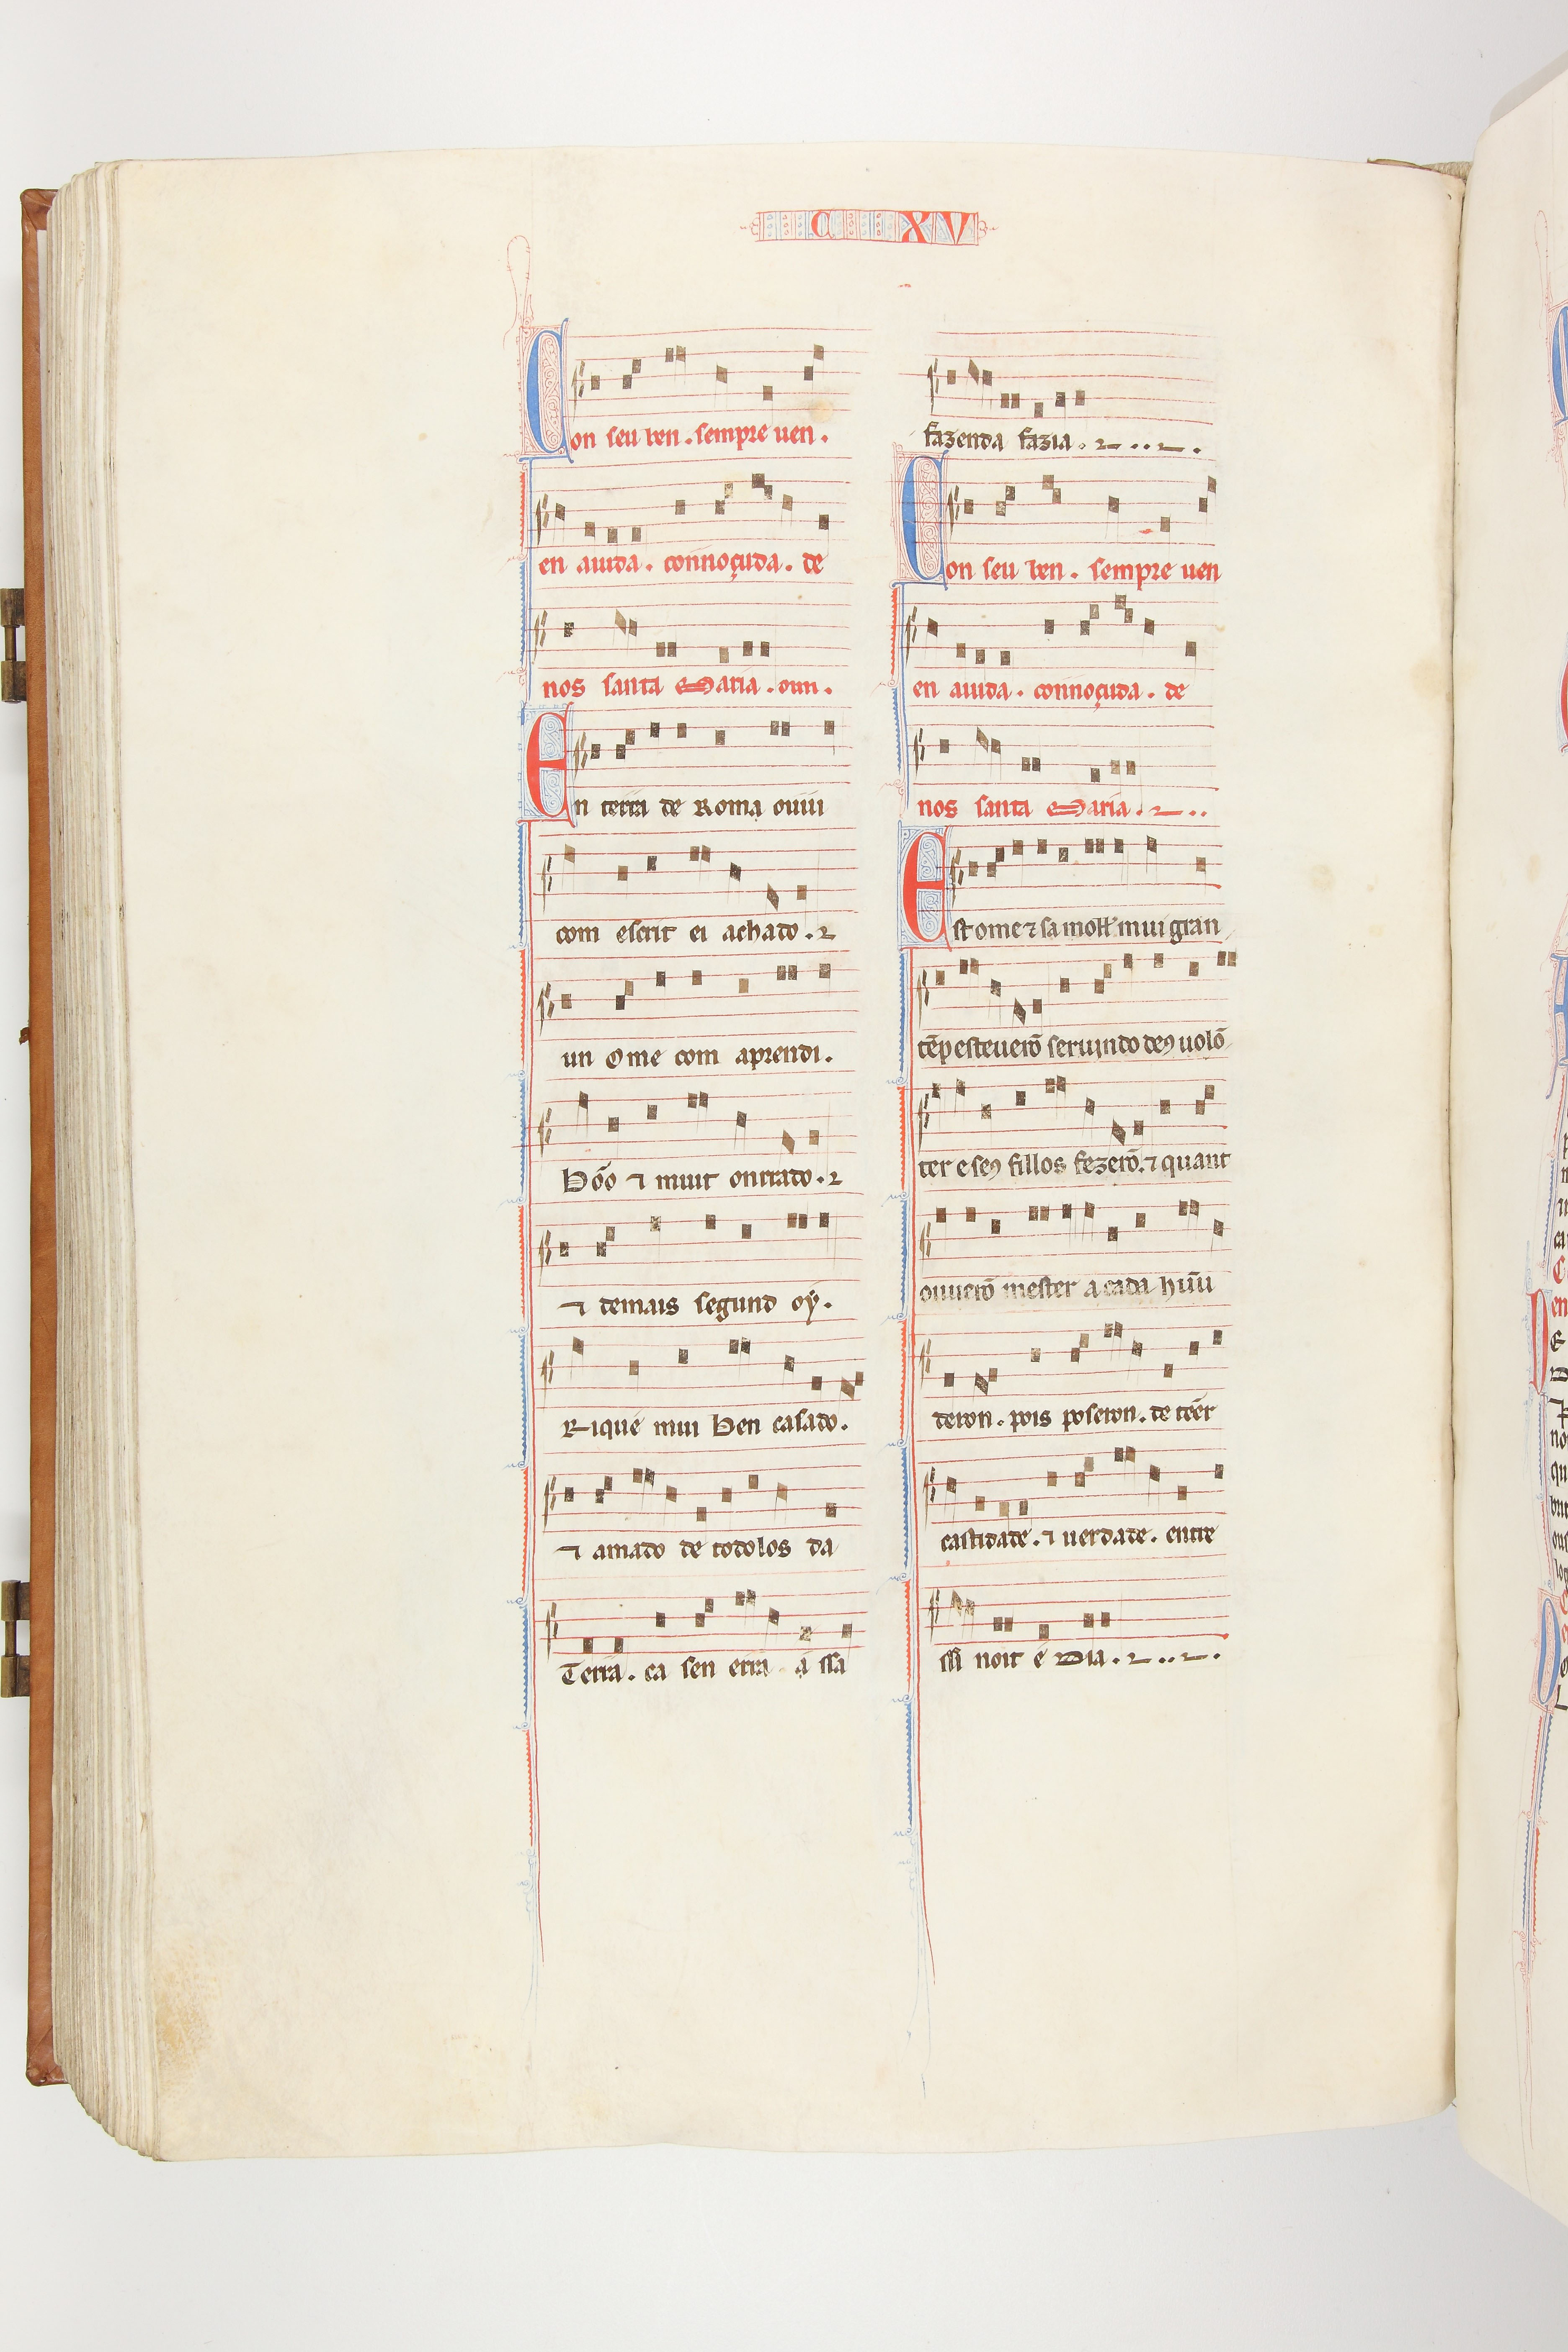 C XV
Con seu ben. sempre uen.
en aiuda. connoçuda. de
nos santa Maria. oun.
En terra de Roma ouúú
com escrit ei achado. ⁊
un Ome com aprendi.
Bóo ⁊ muit onrrado. ⁊
⁊ demais segund oý.
Rique mui ben casado.
⁊ amado de todolos da
Terra. ca sen erra a ssa
fazenda fazia.
Con seu ben. sempre uen
en aiuda. connoçuda. de
nos santa Maria.
Est ome ⁊ sa moll' mui gran
tẽp esteuerõ seruindo deꝯ uolõ
ter e seꝯ fillos fezerõ. ⁊ quant
ouuerõ mester a cada hũu
deron. pois poseron. de tẽer
castidade. ⁊ uerdade. entre
ssi noit e Dia.